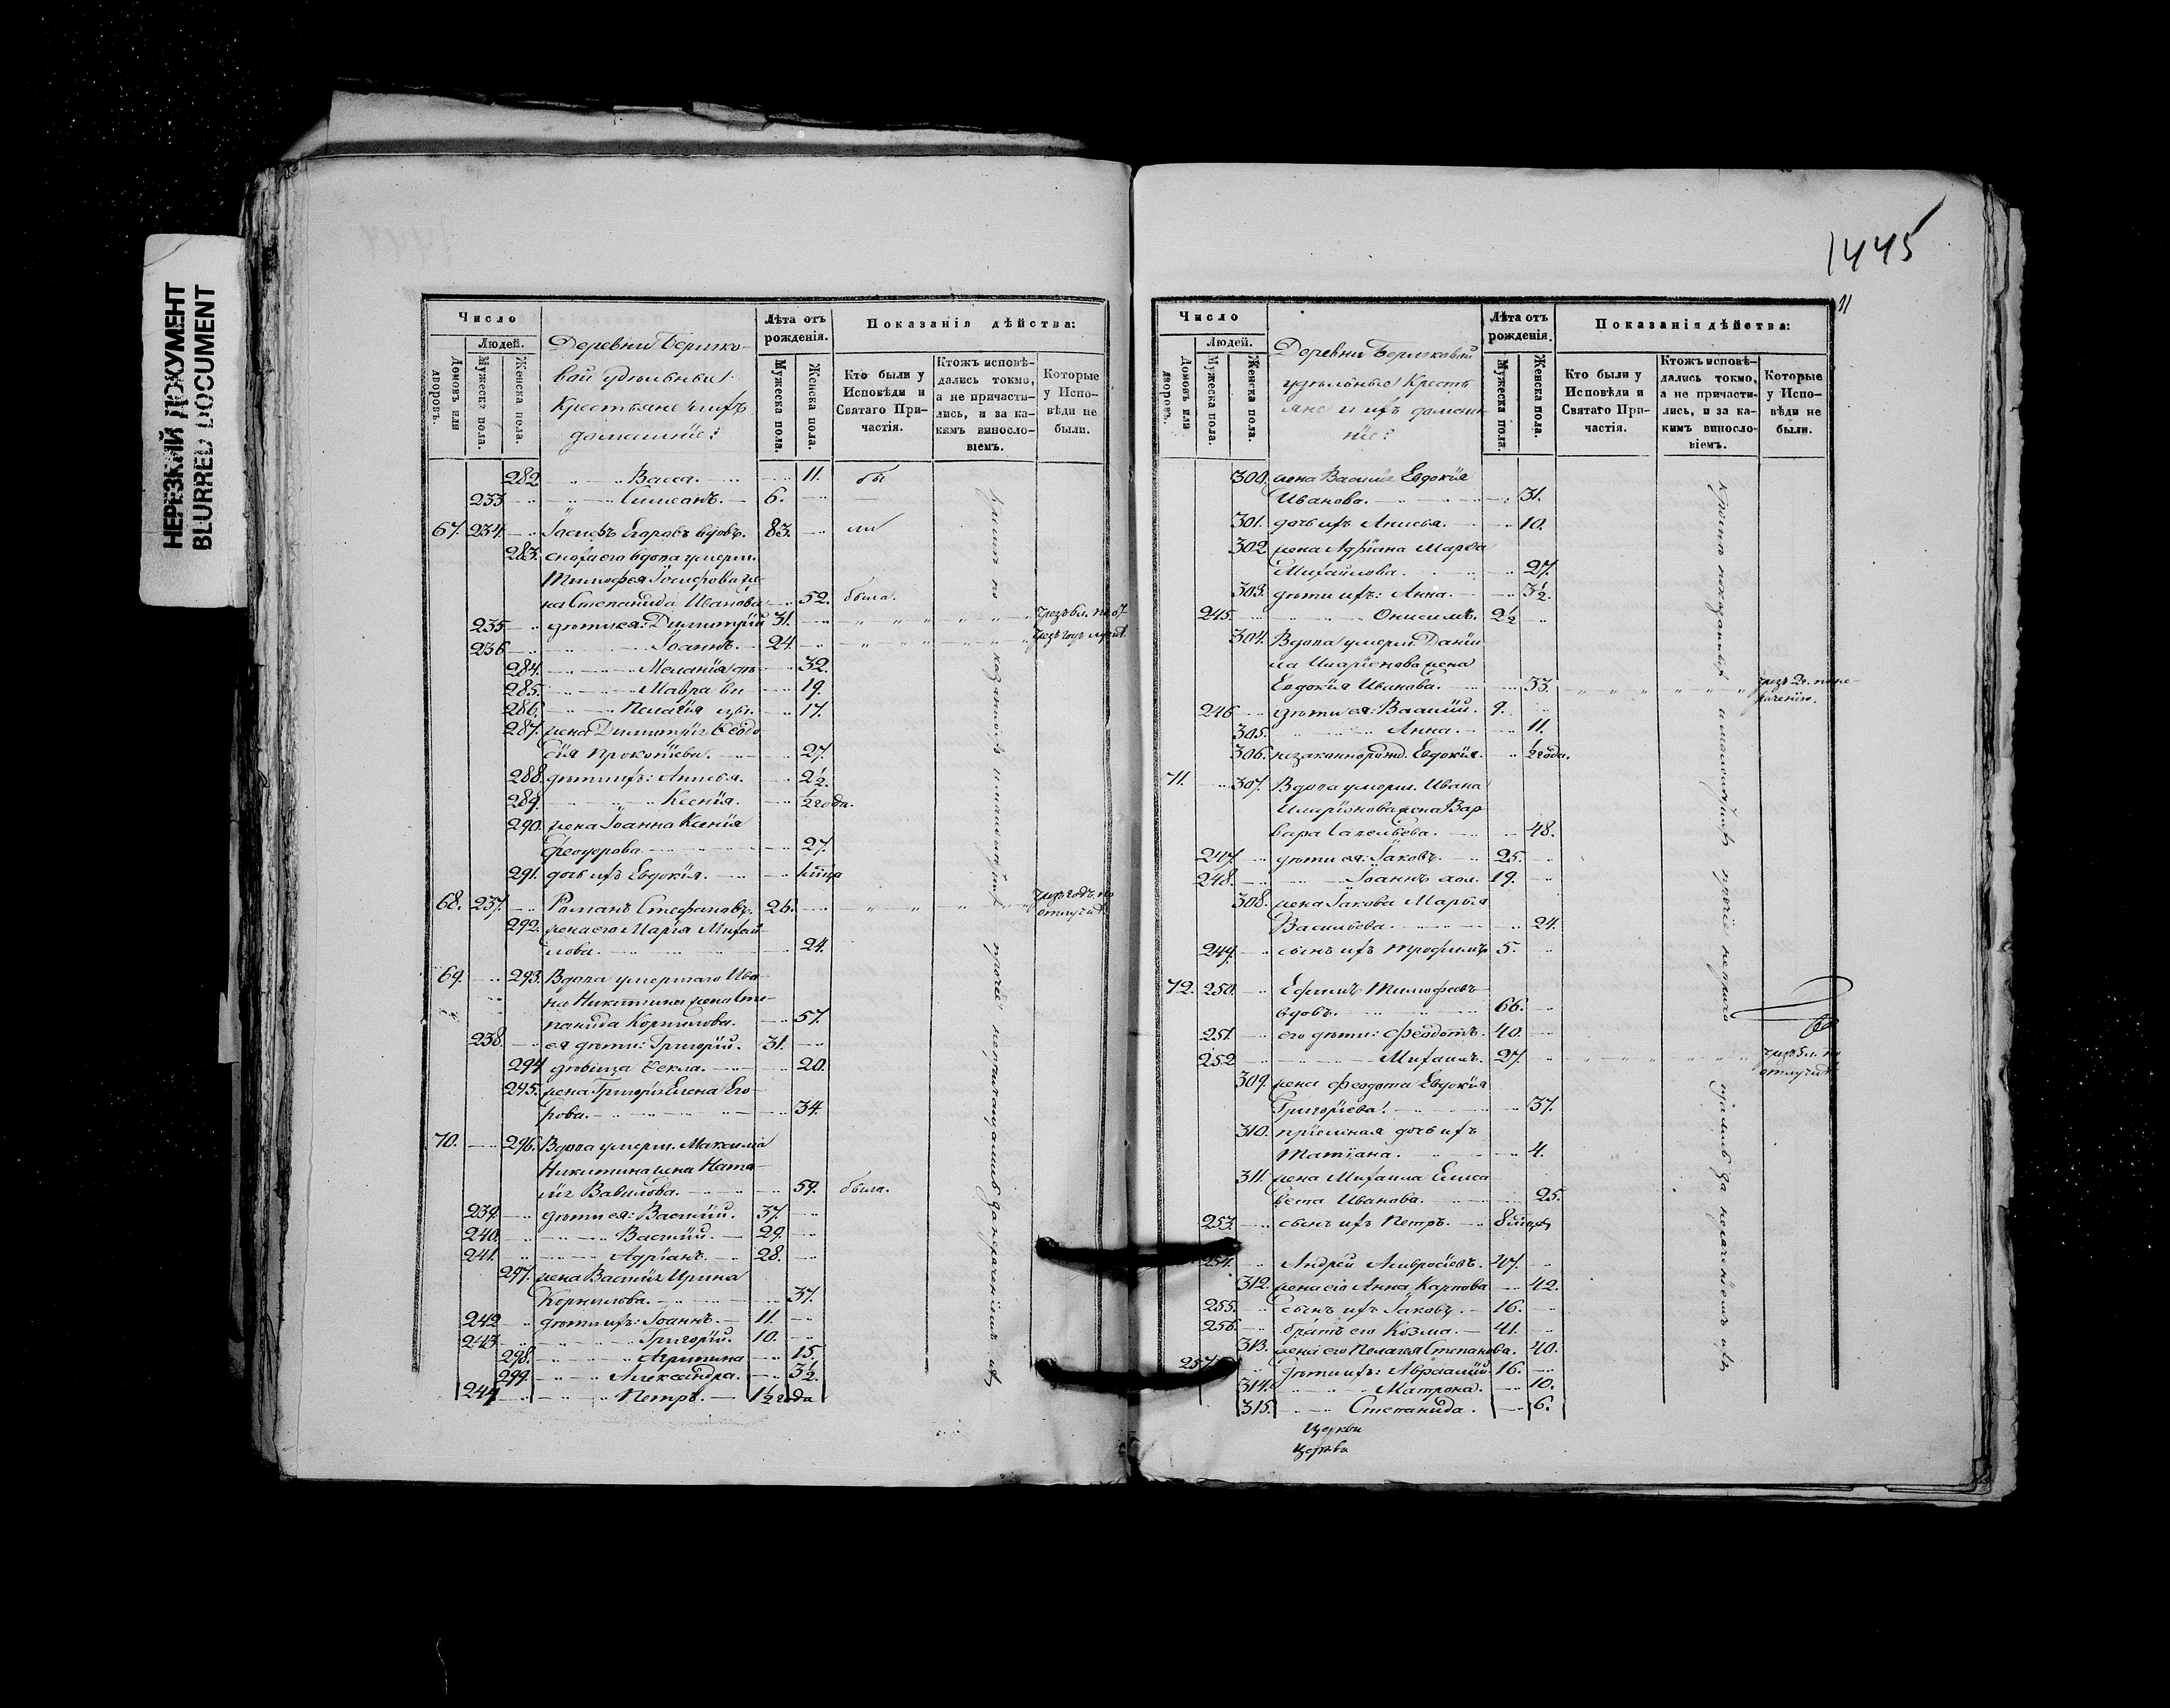 НЕРЕЗКИЙ ДОКУМЕНТ
BLURRED DOCUMENT
Число
Людей.
Домовъ или дворовъ.
Мужеска пола.
Женска пола.
Деревни Берлюко-
вой удѣльные
Крестьяне и ихъ
домашніе:
Лѣта отъ рожденія.
Мужеска пола.
Женска пола.
Показанія дѣйства:
Кто были у Исповѣди и Святаго Причастія.
Ктожъ исповѣдались токмо, а не причастились, и за какимъ винословіемъ.
Которые у Исповѣди не были.
282. Васса. 11. бы
233. Симеонъ. 6.
67. 234. Іосифъ Егоровъ вдовъ. 83. ли
283. сноха его вдова умерш.
Тимофея Іосифова же-
на Степанида Иванова 52. была.
235. дѣти ея: Димитрій 31.
236. Іоаннъ. 24.
284. Меланія дѣ- 32.
285. Мавра ви 19.
286. Пелагія цы. 17.
287. жена Димитрія Ѳеодо
сія Прокопіева. 27.
288. дѣти ихъ: Анисья. 2½.
289. Ксенія. ½ года.
290. жена Іоанна Ксенія
Феодорова 27.
291. дочь ихъ Евдокія.
68. 237. Романъ Стефановъ. 26. чрезъ годъ по
отлучкѣ.
292. жена его Марія Михай
лова. 24.
69. 293. Вдова умершаго Ива
на Никитина жена Сте-
панида Корнилова. 57.
238. ея дѣти: Григорій. 31.
294. дѣвица Ѳекла. 20.
295. жена Григорія Елена Его-
рова. 34.
70. 296. Вдова умерш. Максима
Никитина жена Ната-
лія Вавилова. 59. была.
239. дѣти ея: Василій. 37.
240. Василій. 29.
241. Адріанъ. 28.
297. жена Василія Ирина
Корнилова. 37.
242. дѣти ихъ: Іоаннъ. 11.
243. Григорій. 10.
298. Агрипина 15.
299. Александра. 3½.
244. Петръ. 1½ года
1445
11
Число
Людей.
Домовъ или дворовъ.
Мужеска пола.
Женска пола.
Деревни Берлюковой
удѣльные Кресть
яне и ихъ домаш
ніе:
Лѣта отъ рожденія.
Мужеска пола.
Женска пола.
Показанія дѣйства:
Кто были у Исповѣди и Святаго Причастія.
Ктожъ исповѣдались токмо, а не причастились, и за какимъ винословіемъ.
Которые у Исповѣди не были.
300. жена Василія Евдокія
Иванова. 31.
301. дочь ихъ Анисья. 10.
302. жена Адріана Марѳа
Михайлова. 27.
303. дѣти ихъ: Анна. 3½.
245. Онисимъ. 2½
304. Вдова умерш. Даніи
ла Иларіонова жена
Евдокія Иванова. 33.
246. дѣти ея: Василій. 9.
305. Анна. 11.
306. незаконнорожд. Евдокія. ½ года.
71. 307. Вдова умерш. Ивана
Иларіонова жена Вар
вара Савельева. 48.
247. дѣти ея: Іаковъ. 25.
248. Іоаннъ хол. 19.
308. жена Іакова Марья
Васильева. 24.
249. сынъ ихъ Трофимъ 5.
72. 250. Ефимъ Тимофеевъ
вдовъ. 66.
251. его дѣти: Феодотъ. 40.
252. Михаилъ. 27.
отлучкѣ.
309. жена Феодота Евдокія
Григорьева. 37.
310. пріемная дочь ихъ
Татіана. 4.
311. жена Михаила Елиса
вета Иванова. 25.
253. сынъ ихъ Петръ.
254. Андрей Амвросіевъ. 47.
312. жена его Анна Карпова 42.
255. Сынъ ихъ Іаковъ. 16.
256. братъ его Козма. 41.
313. жена его Пелагія Степанова. 40.
257. дѣти ихъ: Авраамій. 16.
314. Матрона. 10.
315. Степанида. 6.
Церкви
Церкви